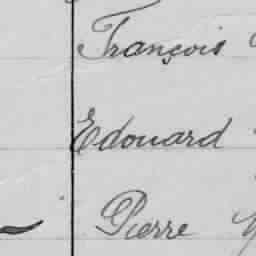 François
Edouard
Pierre